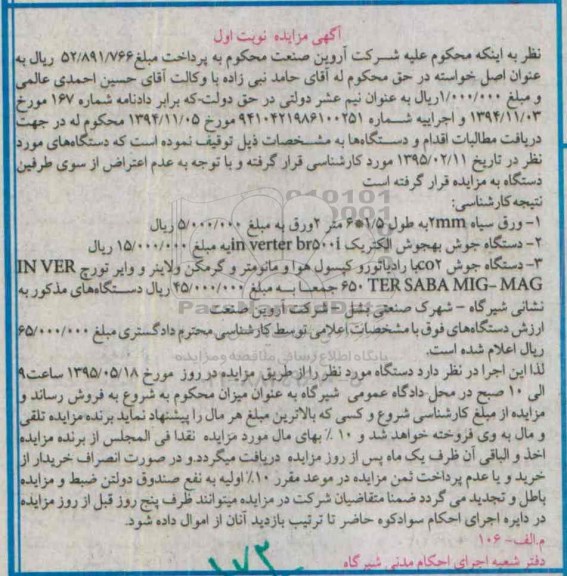 آگهی مزایده نوبت اول
نظر به اینکه محکوم علیه شرکت آروین صنعت محکوم به پرداخت مبلغ ۵۲/۸۹۱/۷۶۶ ریال به
عنوان اصل خواسته در حق محکوم له آقای حامد نبی زاده با وکالت آقای حسین احمدی عالمی
و مبلغ ۱/۰۰۰/۰۰۰ریال به عنوان نیم عشر دولتی در حق دولت-که برابر دادنامه شماره ۱۶۷ مورخ
۱۳۹۴/۱۱/۰۳ و اجراییه شماره ۹۴۱۰۴۲۱۹۸۶۱۰۰۲۵۱ مورخ ۱۳۹۴/۱۱/۰۵ محکوم له در جهت
دریافت مطالبات اقدام و دستگاه‌ها به مشخصات ذیل توقیف نموده است که دستگاه‌های مورد
نظر در تاریخ ۱۳۹۵/۰۲/۱۱ مورد کارشناسی قرار گرفته و با توجه به عدم اعتراض از سوی طرفین
دستگاه به مزایده قرار گرفته است
نتیجه کارشناسی:
۱- ورق سیاه ۲mmبه طول ۱/۵*۶ متر ۲ورق به مبلغ ۵/۰۰۰/۰۰۰ ریال
۲- دستگاه جوش بهجوش الکتریک in verter br۵۰۰iبه مبلغ ۱۵/۰۰۰/۰۰۰ ریال
۳- دستگاه جوش co۲با رادیاتورو کپسول هوا و مانومتر و گرمکن ولاینر و وایر تورچ IN VER
TER SABA MIG- MAG ۶۵۰ جمعا به مبلغ ۴۵/۰۰۰/۰۰۰ ریال دستگاه‌های مذکور به
نشانی شیرگاه – شهرک صنعتی بشل – شرکت آروین صنعت
ارزش دستگاه‌های فوق با مشخصات اعلامی توسط کارشناسی محترم دادگستری مبلغ ۶۵/۰۰۰/۰۰۰
ریال اعلام شده است.
لذا این اجرا در نظر دارد دستگاه مورد نظر را از طریق مزایده در روز مورخ ۱۳۹۵/۰۵/۱۸ ساعت۹
الی ۱۰ صبح در محل دادگاه عمومی شیرگاه به عنوان میزان محکوم به شروع به فروش رساند و
مزایده از مبلغ کارشناسی شروع و کسی که بالاترین مبلغ هر مال را پیشنهاد نماید برنده مزایده تلقی
و مال به وی فروخته خواهد شد و ۱۰ ٪ بهای مال مورد مزایده نقدا فی المجلس از برنده مزایده
اخذ و الباقی آن ظرف یک ماه پس از روز مزایده دریافت میگردد.و در صورت انصراف خریدار از
خرید و یا عدم پرداخت ثمن مزایده در موعد مقرر ۱۰٪ اولیه به نفع صندوق دولتن ضبط و مزایده
باطل و تجدید می گردد ضمنا متقاضیان شرکت در مزایده میتوانند ظرف پنج روز قبل از روز مزایده
در دایره اجرای احکام سوادکوه حاضر تا ترتیب بازدید آنان از اموال داده شود.
م.الف- ۱۰۶
دفتر شعبه اجرای احکام مدنی شیرگاه
۱۷۳